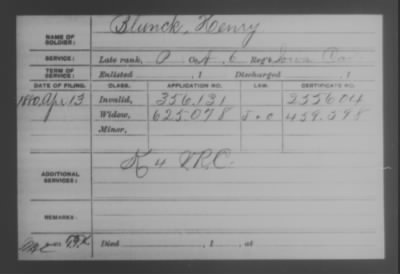 Blunck, Henry
NAME OF SOLDIER:
SERVICE: Late rank, P Co. A, 6 Reg't Iowa Cav
TERM OF SERVICE: Enlisted , 1 Discharged , 1
DATE OF FILING. CLASS. APPLICATION NO. LAW. CERTIFICATE NO.
1880, Apr 13 Invalid, 356,131 255604
Widow, 625078 459,598
Minor,
ADDITIONAL SERVICES: K 4 VRC
REMARKS:
Died , 1 , at